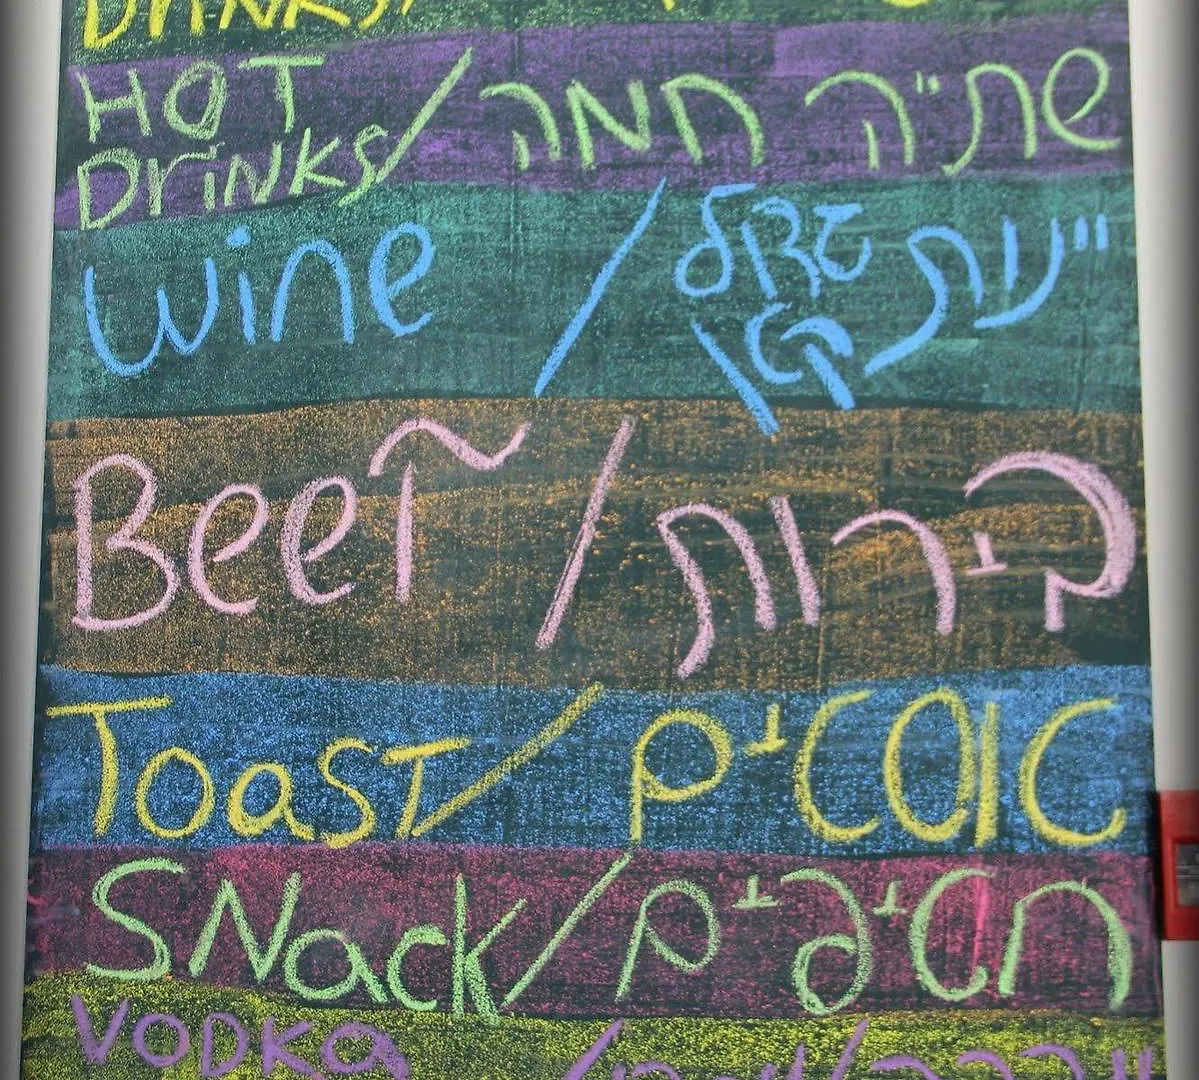 DrINKS/
HOT DrINKS / שת״ה חמה
wine / יינות גדול קטן
Beer / בירות
Toast / טוסטים
SNack / חטיפים
VODKA /